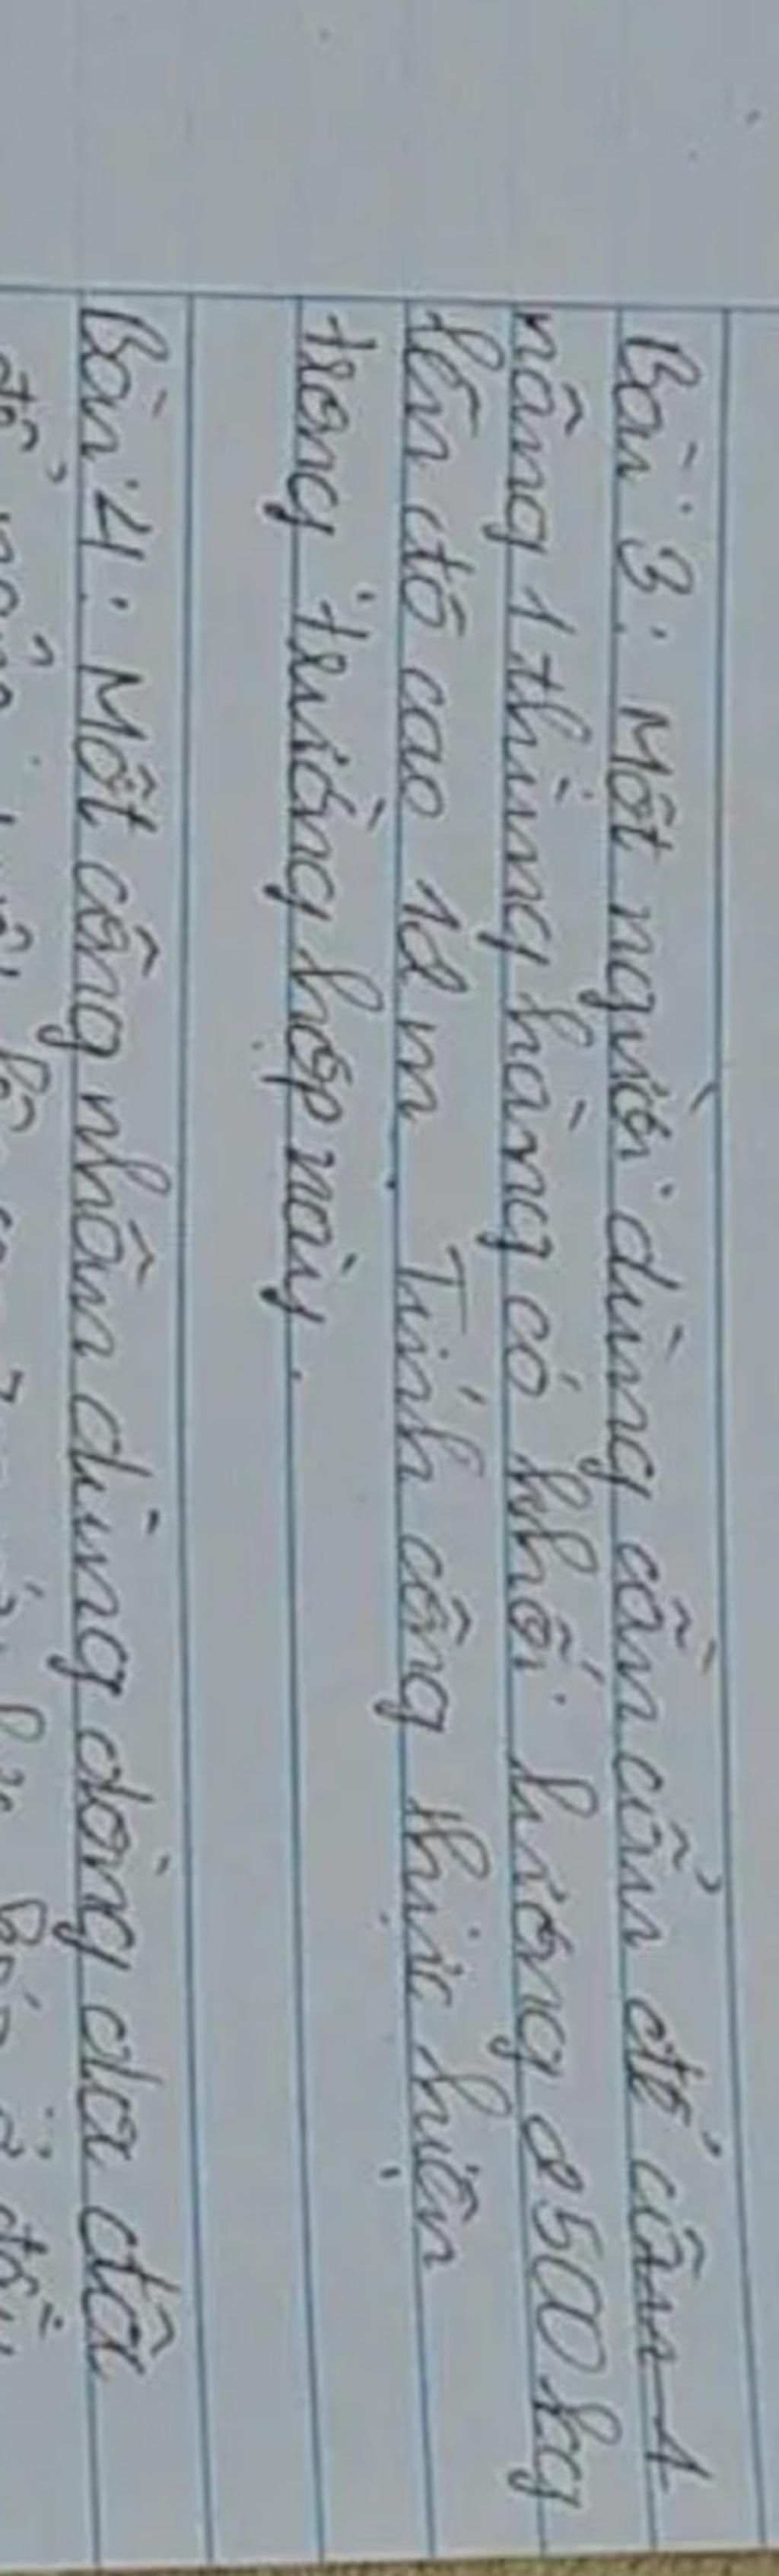 Bài 3: Một người dùng cần cẩu để cẩu 1
nâng 1 thùng hàng có khối lượng 2500 kg
lên độ cao 12 m. Tính công thực hiện
trong trường hợp này.
Bài 4: Một công nhân dùng dòng dọc đã
để